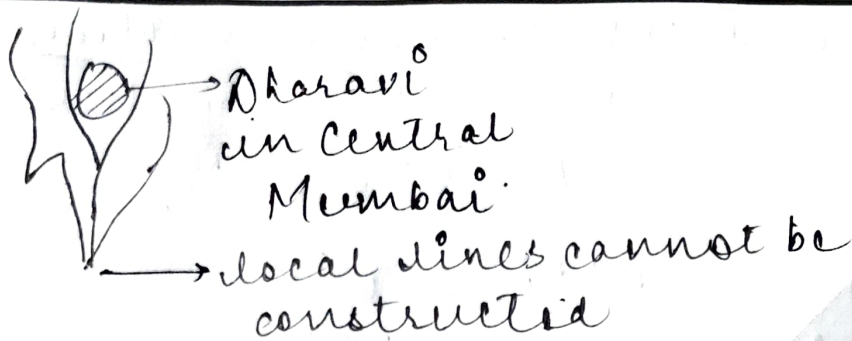 Dharavi
in Central
Mumbai.
local lines cannot be
constructed